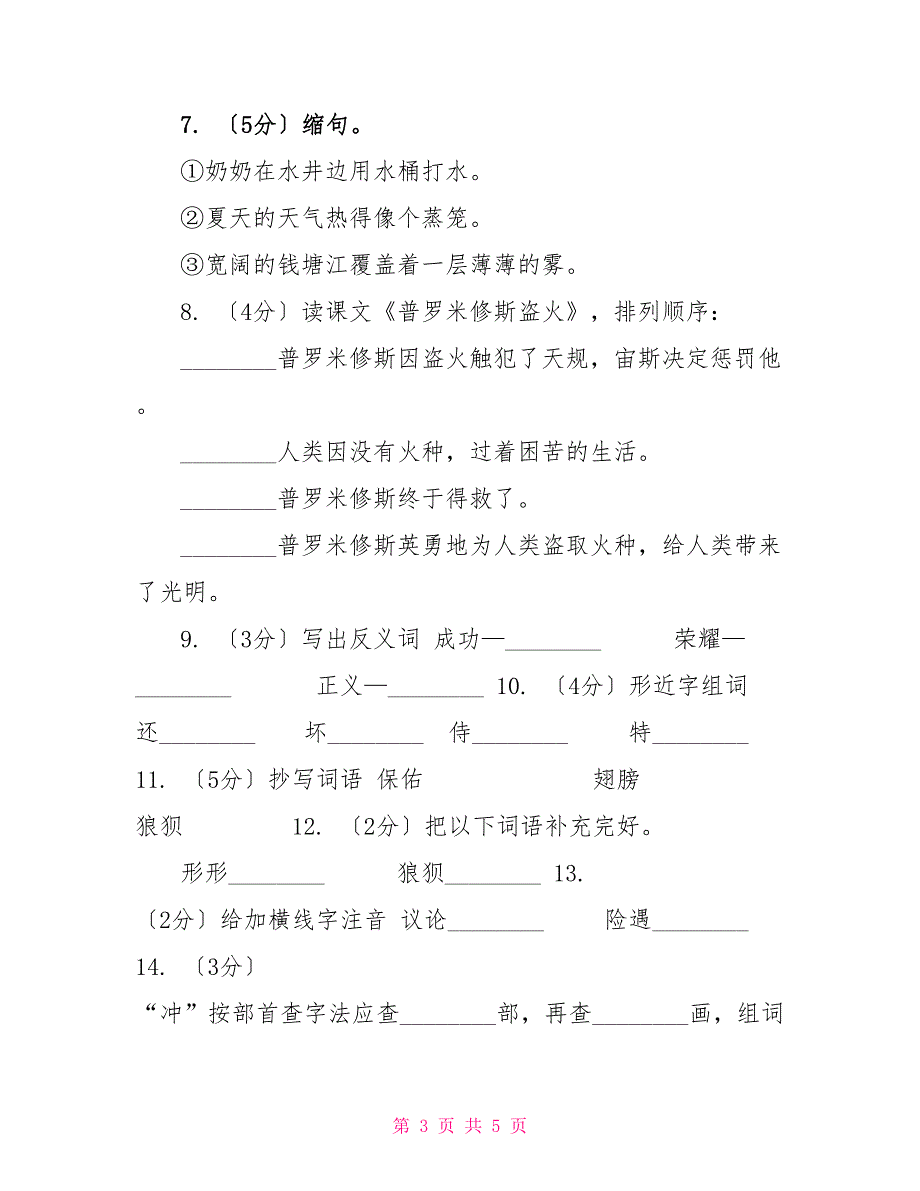 7. 〔5分〕缩句。
①奶奶在水井边用水桶打水。
②夏天的天气热得像个蒸笼。
③宽阔的钱塘江覆盖着一层薄薄的雾。
8. 〔4分〕读课文《普罗米修斯盗火》，排列顺序：
________普罗米修斯因盗火触犯了天规，宙斯决定惩罚他
。
________人类因没有火种，过着困苦的生活。
________普罗米修斯终于得救了。
________普罗米修斯英勇地为人类盗取火种，给人类带来
了光明。
9. 〔3分〕写出反义词 成功—________ 荣耀—
________ 正义—________ 10. 〔4分〕形近字组词
还________ 坏________ 侍________ 特________
11. 〔5分〕抄写词语 保佑 翅膀
狼狈 12. 〔2分〕把以下词语补充完好。
形形________ 狼狈________ 13.
〔2分〕给加横线字注音 议论________ 险遇________
14. 〔3分〕
“冲”按部首查字法应查________部，再查________画，组词
第 3 页 共 5 页